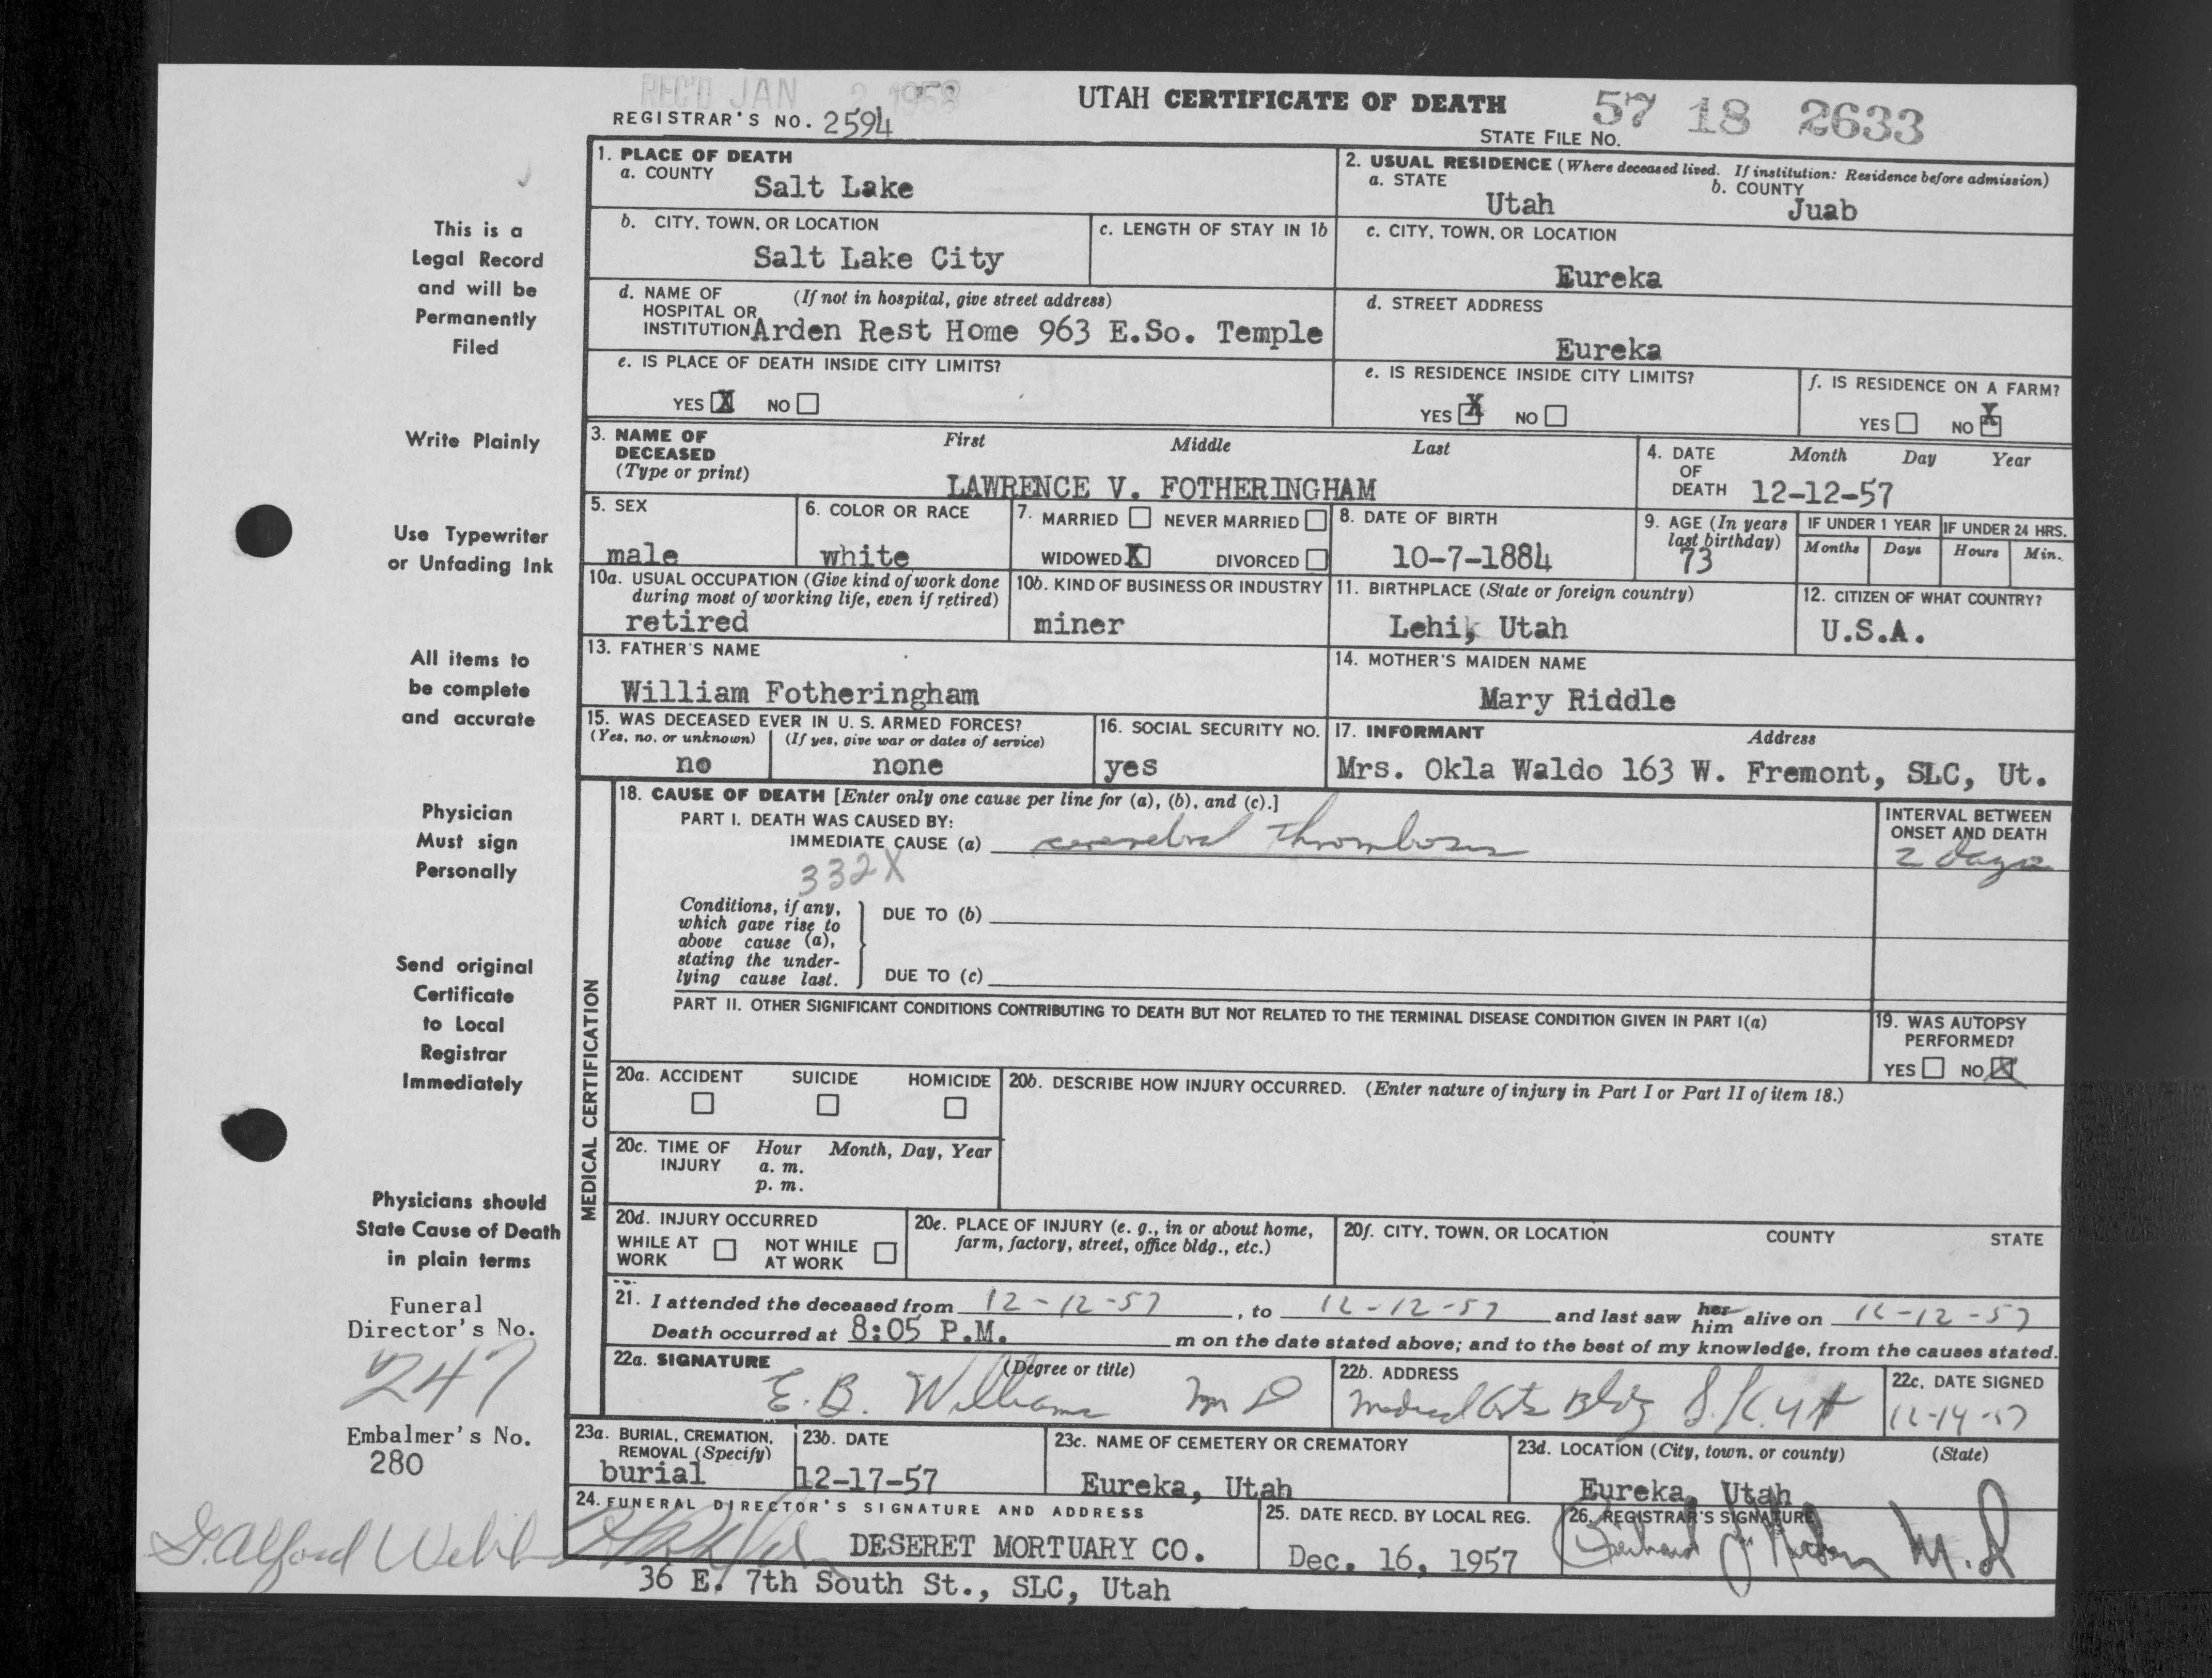 REC'D JAN 2 1958
UTAH CERTIFICATE OF DEATH
57 18 2633
REGISTRAR'S NO. 2594
STATE FILE NO.
This is a
Legal Record
and will be
Permanently
Filed
Write Plainly
Use Typewriter
or Unfading Ink
All items to
be complete
and accurate
Physician
Must sign
Personally
Send original
Certificate
to Local
Registrar
Immediately
Physicians should
State Cause of Death
in plain terms
Funeral
Director's No.
247
Embalmer's No.
280
1. PLACE OF DEATH
a. COUNTY
Salt Lake
2. USUAL RESIDENCE (Where deceased lived. If institution: Residence before admission)
a. STATE
Utah
b. COUNTY
Juab
b. CITY, TOWN, OR LOCATION
Salt Lake City
c. LENGTH OF STAY IN 1b
c. CITY, TOWN, OR LOCATION
Eureka
d. NAME OF (If not in hospital, give street address)
HOSPITAL OR
INSTITUTION Arden Rest Home 963 E.So. Temple
d. STREET ADDRESS
Eureka
e. IS PLACE OF DEATH INSIDE CITY LIMITS?
YES X NO
e. IS RESIDENCE INSIDE CITY LIMITS?
YES X NO
f. IS RESIDENCE ON A FARM?
YES NO X
3. NAME OF First Middle Last
DECEASED
(Type or print)
LAWRENCE V. FOTHERINGHAM
4. DATE Month Day Year
OF
DEATH 12-12-57
5. SEX
male
6. COLOR OR RACE
white
7. MARRIED NEVER MARRIED
WIDOWED X DIVORCED
8. DATE OF BIRTH
10-7-1884
9. AGE (In years
last birthday)
73
IF UNDER 1 YEAR
Months Days
IF UNDER 24 HRS.
Hours Min.
10a. USUAL OCCUPATION (Give kind of work done
during most of working life, even if retired)
retired
10b. KIND OF BUSINESS OR INDUSTRY
miner
11. BIRTHPLACE (State or foreign country)
Lehi, Utah
12. CITIZEN OF WHAT COUNTRY?
U.S.A.
13. FATHER'S NAME
William Fotheringham
14. MOTHER'S MAIDEN NAME
Mary Riddle
15. WAS DECEASED EVER IN U. S. ARMED FORCES?
(Yes, no, or unknown) (If yes, give war or dates of service)
no none
16. SOCIAL SECURITY NO.
yes
17. INFORMANT Address
Mrs. Okla Waldo 163 W. Fremont, SLC, Ut.
MEDICAL CERTIFICATION
18. CAUSE OF DEATH [Enter only one cause per line for (a), (b), and (c).]
PART I. DEATH WAS CAUSED BY:
IMMEDIATE CAUSE (a) cerebral thrombosis
332X
INTERVAL BETWEEN
ONSET AND DEATH
2 days
Conditions, if any,
which gave rise to
above cause (a),
stating the under-
lying cause last.
DUE TO (b)
DUE TO (c)
PART II. OTHER SIGNIFICANT CONDITIONS CONTRIBUTING TO DEATH BUT NOT RELATED TO THE TERMINAL DISEASE CONDITION GIVEN IN PART I(a)
19. WAS AUTOPSY
PERFORMED?
YES NO X
20a. ACCIDENT SUICIDE HOMICIDE
20b. DESCRIBE HOW INJURY OCCURRED. (Enter nature of injury in Part I or Part II of item 18.)
20c. TIME OF Hour Month, Day, Year
INJURY a. m.
p. m.
20d. INJURY OCCURRED
WHILE AT NOT WHILE
WORK AT WORK
20e. PLACE OF INJURY (e. g., in or about home,
farm, factory, street, office bldg., etc.)
20f. CITY, TOWN, OR LOCATION COUNTY STATE
21. I attended the deceased from 12-12-57, to 12-12-57 and last saw her him alive on 12-12-57
Death occurred at 8:05 P.M. m on the date stated above; and to the best of my knowledge, from the causes stated.
22a. SIGNATURE (Degree or title)
E. B. Williams M D
22b. ADDRESS
Medical Arts Bldg
22c. DATE SIGNED
12-14-57
23a. BURIAL, CREMATION,
REMOVAL (Specify)
burial
23b. DATE
12-17-57
23c. NAME OF CEMETERY OR CREMATORY
Eureka, Utah
23d. LOCATION (City, town, or county) (State)
Eureka, Utah
24. FUNERAL DIRECTOR'S SIGNATURE AND ADDRESS
DESERET MORTUARY CO.
36 E. 7th South St., SLC, Utah
25. DATE RECD. BY LOCAL REG.
Dec. 16, 1957
26. REGISTRAR'S SIGNATURE
M.D
Alford Webb